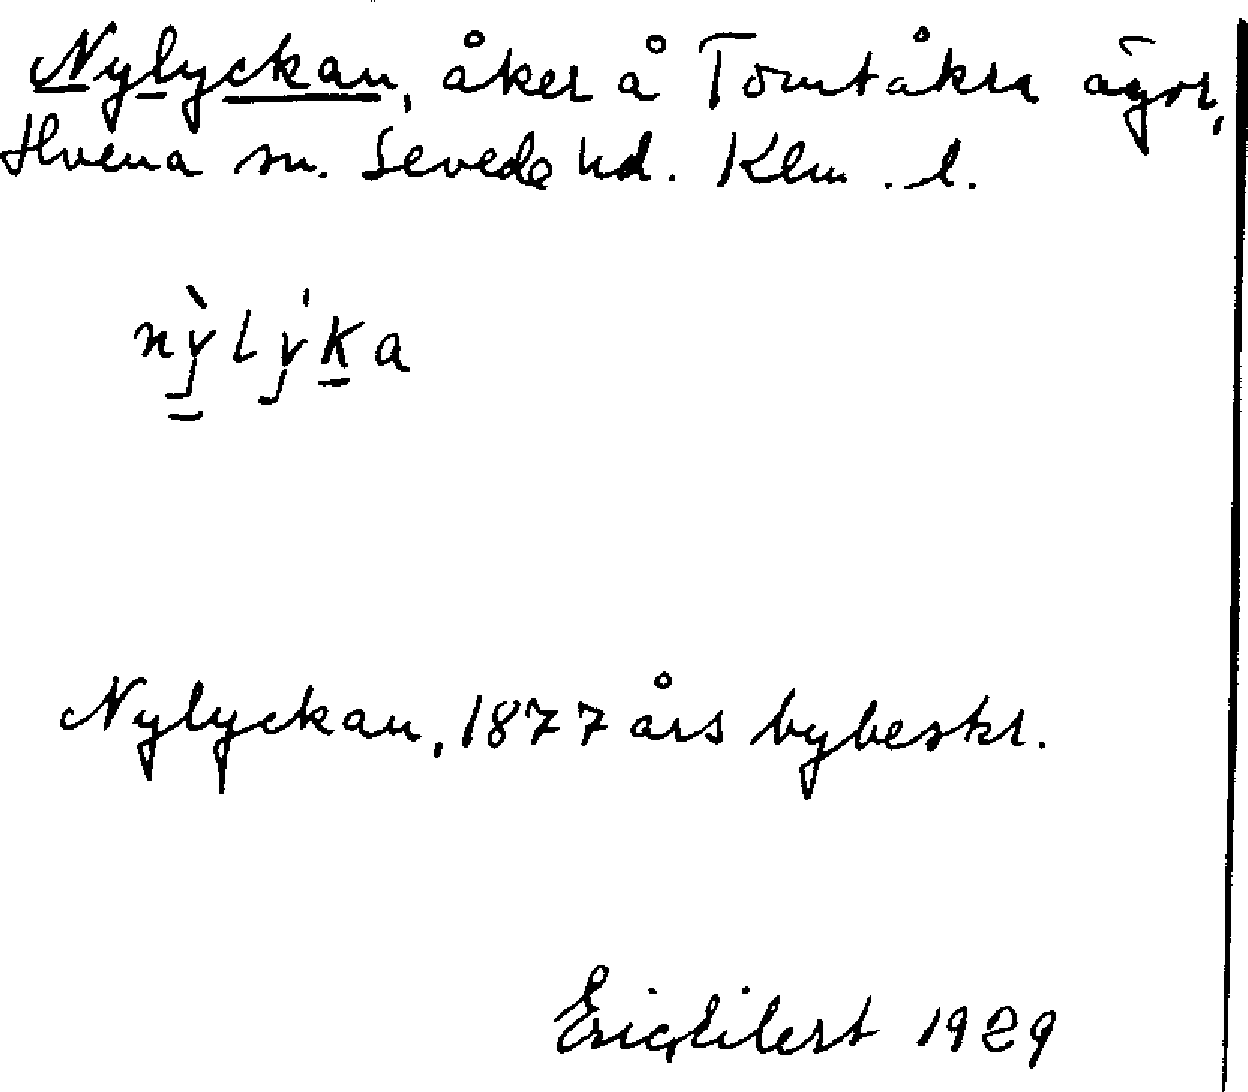 Nylyckan, åker å Tomtåkra ägor,
Hvena sn. Sevede hd. Klm. l.
nỳlýka
Nylyckan, 1877 års bybeskr.
1929